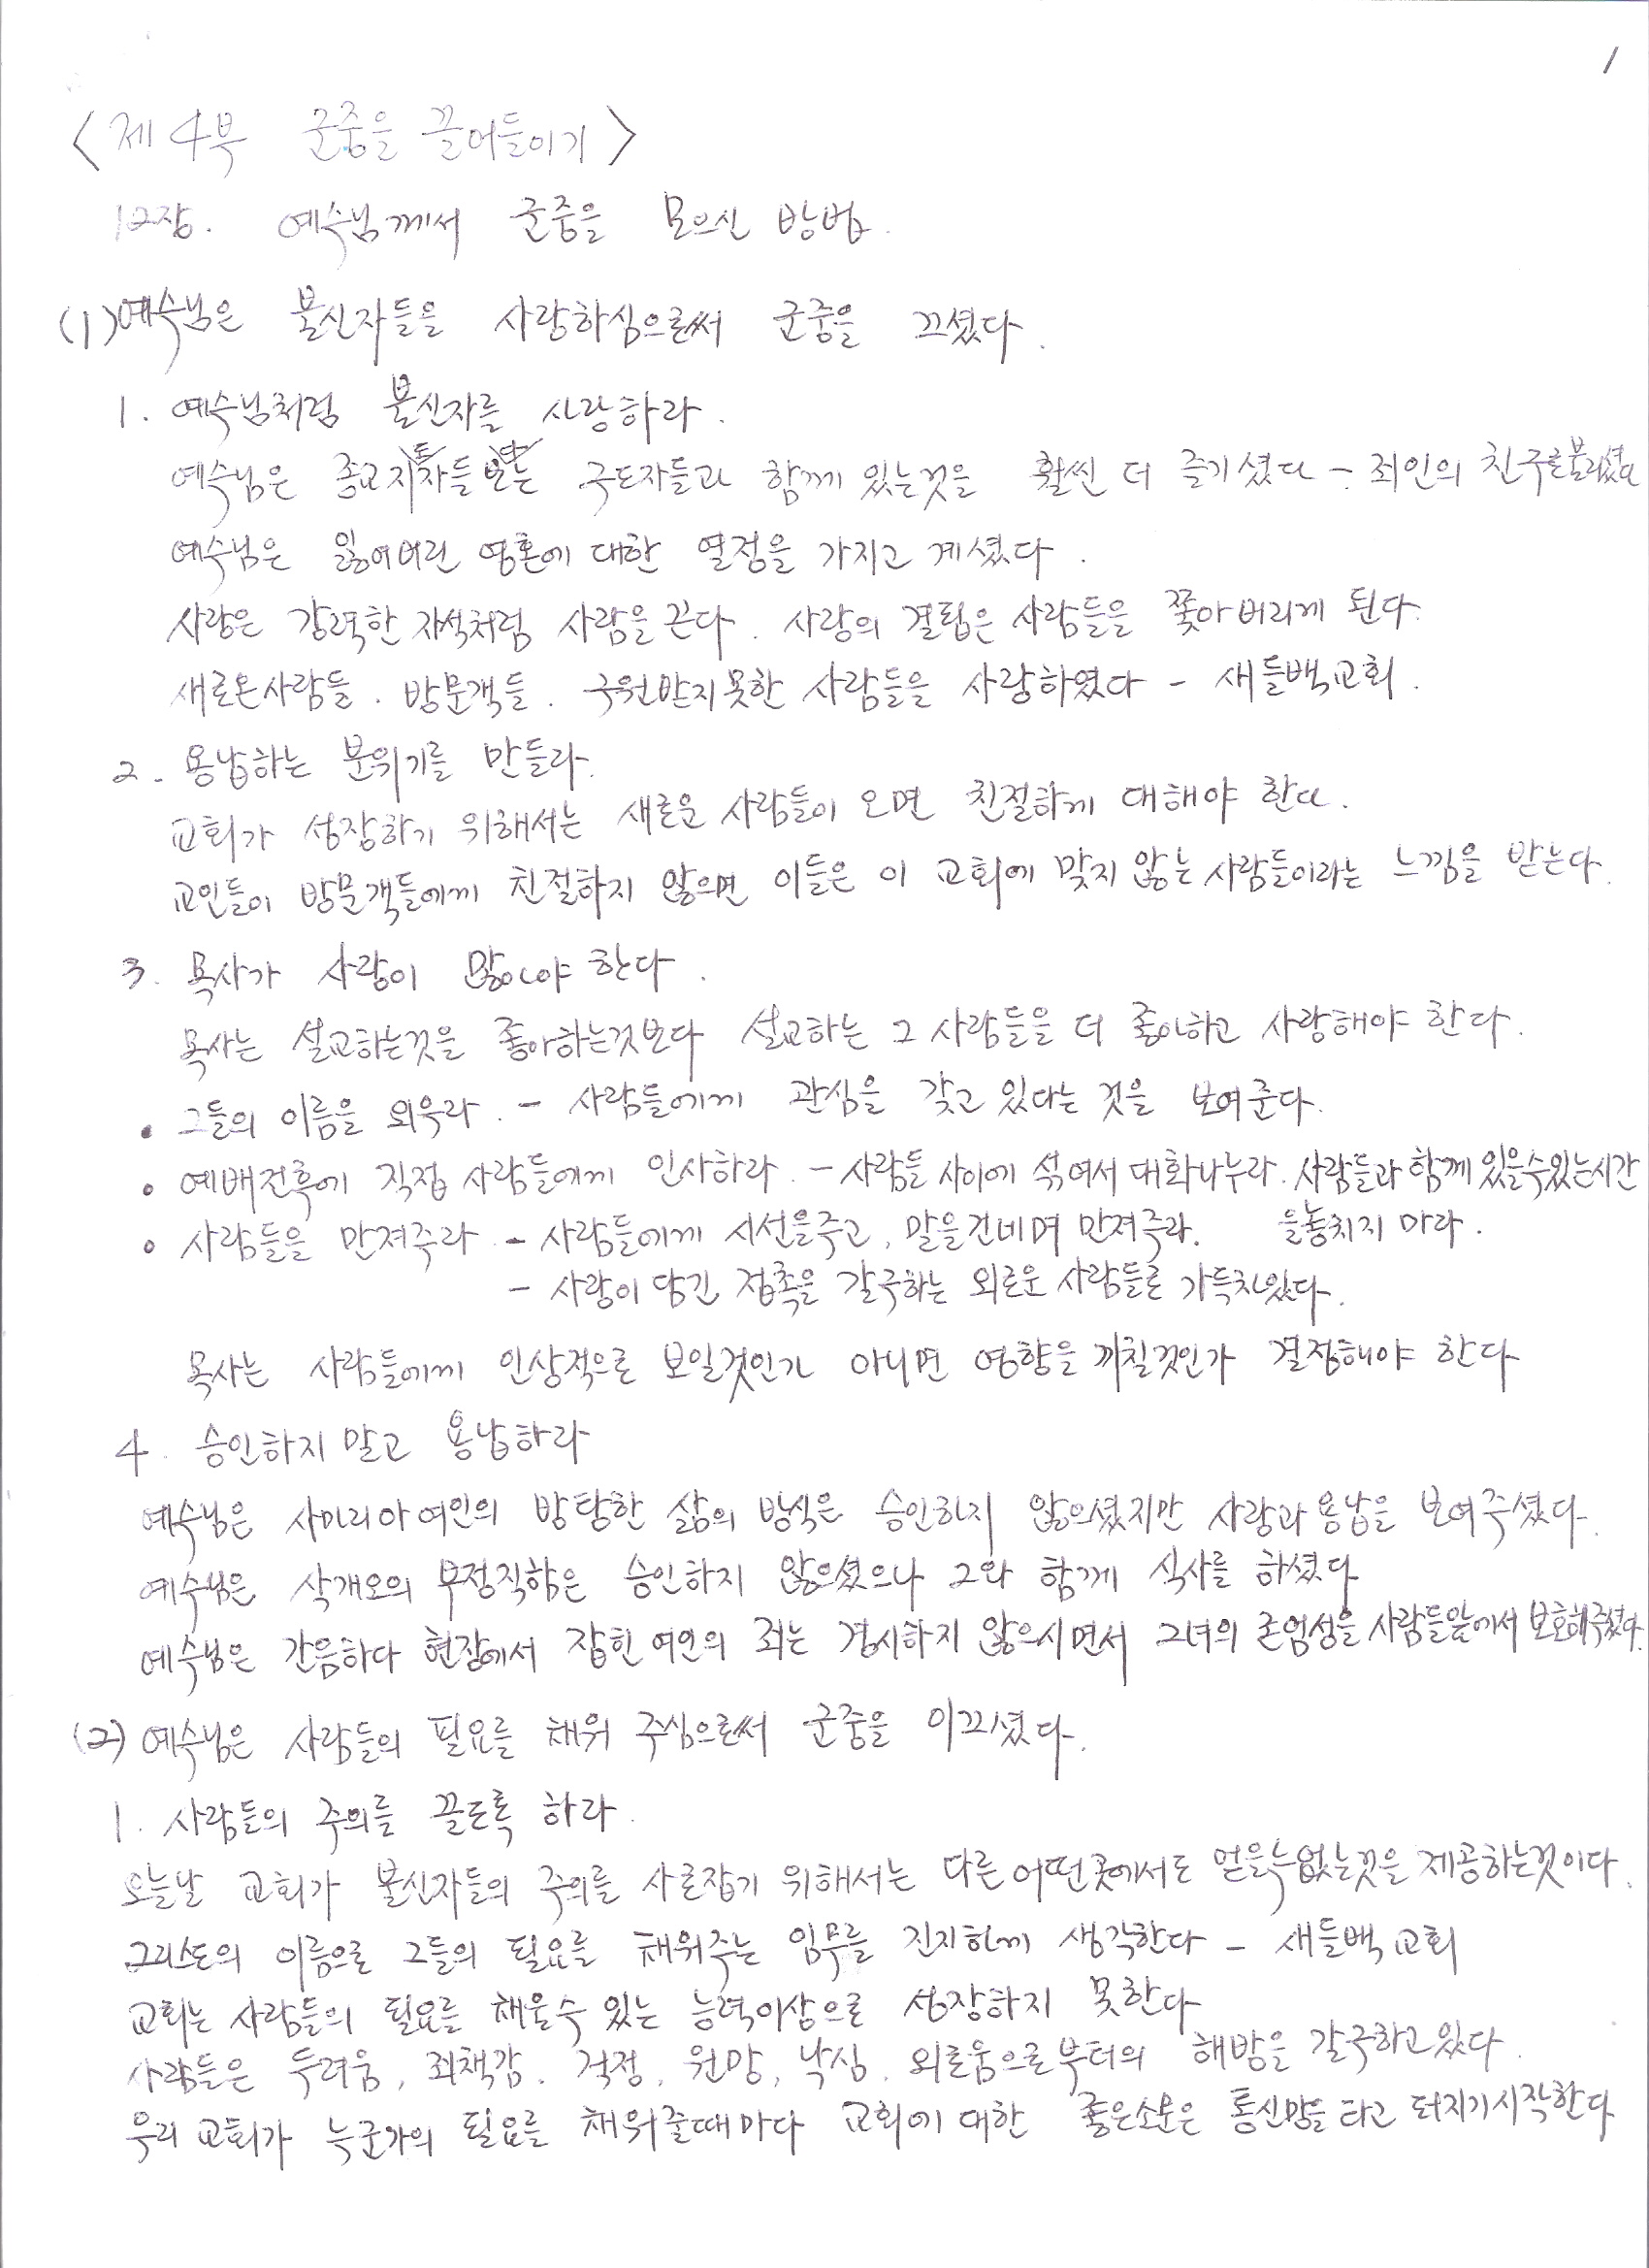 1
<제4부 군중을 끌어들이기>
12장. 예수님께서 군중을 모으신 방법.
(1) 예수님은 불신자들을 사랑하심으로써 군중을 끄셨다.
1. 예수님처럼 불신자를 사랑하라.
예수님은 종교지도자들보다는 구도자들과 함께 있는것을 훨씬 더 즐기셨다 - 죄인의 친구로불리셨다
예수님은 잃어버린 영혼에 대한 열정을 가지고 계셨다.
사랑은 강력한 자석처럼 사람을 끈다. 사랑의 결핍은 사람들을 쫓아버리게 된다.
새로온사람들. 방문객들. 구원받지못한 사람들을 사랑하였다 - 새들백교회.
2. 용납하는 분위기를 만들라.
교회가 성장하기 위해서는 새로운 사람들이 오면 친절하게 대해야 한다.
교인들이 방문객들에게 친절하지 않으면 이들은 이 교회에 맞지 않는 사람들이라는 느낌을 받는다.
3. 목사가 사랑이 많아야 한다.
목사는 설교하는것을 좋아하는것보다 설교하는 그 사람들을 더 좋아하고 사랑해야 한다.
• 그들의 이름을 외우라. - 사람들에게 관심을 갖고 있다는 것을 보여준다.
• 예배전후에 직접 사람들에게 인사하라. - 사람들 사이에 섞여서 대화나누라. 사람들과 함께 있을수있는시간
• 사람들을 만져주라 - 사람들에게 시선을주고, 말을건네며 만져주라. 을놓치지 마라.
- 사랑이 담긴 접촉을 갈구하는 외로운 사람들로 가득차있다.
목사는 사람들에게 인상적으로 보일것인가 아니면 영향을 끼칠것인가 결정해야 한다
4. 승인하지 말고 용납하라
예수님은 사마리아 여인의 방탕한 삶의 방식은 승인하지 않으셨지만 사랑과 용납을 보여주셨다.
예수님은 삭개오의 부정직함은 승인하지 않으셨으나 그와 함께 식사를 하셨다
예수님은 간음하다 현장에서 잡힌 여인의 죄는 경시하지 않으시면서 그녀의 존엄성을 사람들앞에서 보호해주셨다.
(2) 예수님은 사람들의 필요를 채워 주심으로써 군중을 이끄셨다.
1. 사람들의 주의를 끌도록 하라.
오늘날 교회가 불신자들의 주의를 사로잡기 위해서는 다른 어떤곳에서도 얻을수없는것을 제공하는것이다.
그리스도의 이름으로 그들의 필요를 채워주는 임무를 진지하게 생각한다 - 새들백 교회
교회는 사람들의 필요를 채울수 있는 능력이상으로 성장하지 못한다
사람들은 두려움, 죄책감. 걱정, 원망, 낙심, 외로움으로부터의 해방을 갈구하고있다.
우리 교회가 누군가의 필요를 채워줄때마다 교회에 대한 좋은소문은 통신망을 타고 퍼지기시작한다